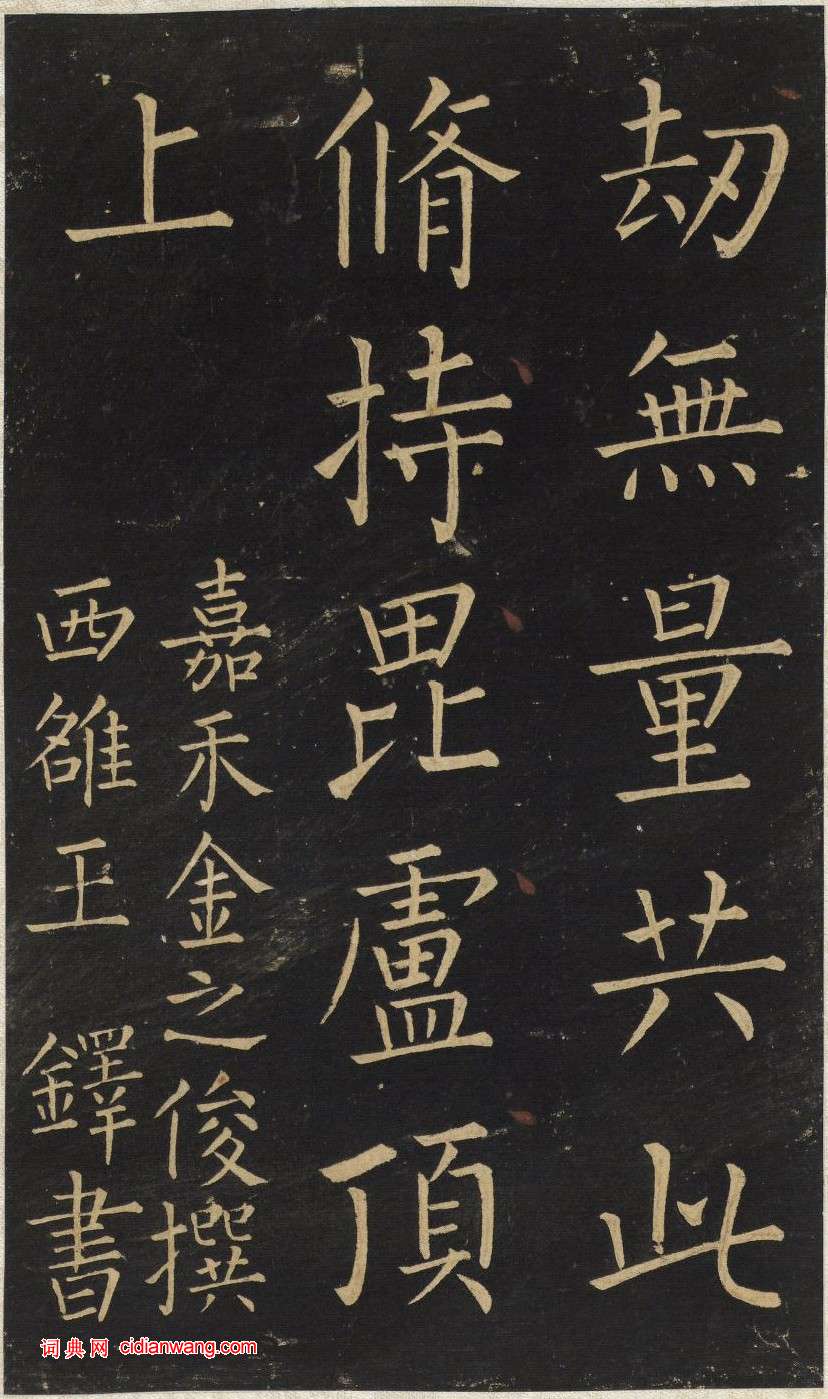 劫無量共此
脩持毘盧頂
上
嘉禾金之俊撰
西雒王鐸書
词典网 cidianwang.com